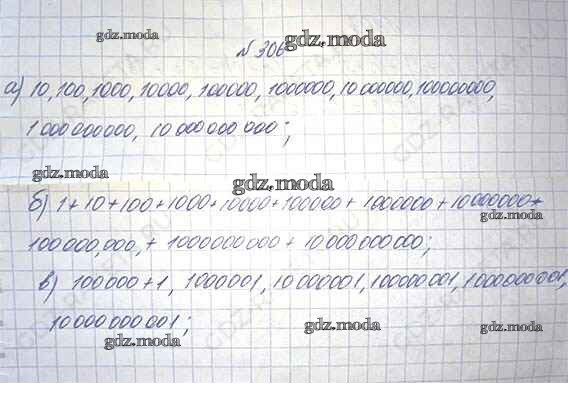 gdz.moda
№ 306 gdz.moda
а) 10, 100, 1000, 10000, 100000, 1000000, 10000000, 100000000,
1000000000, 10000000000;
gdz.moda gdz.moda
gdz.moda
б) 1 + 10 + 100 + 1000 + 10000 + 100000 + 1000000 + 10000000 +
gdz.moda
100000,000, + 1000000000 + 10000000000;
в) 100000 + 1, 1000001, 10000001, 100000001, 1000000001,
10000000001;
gdz.moda gdz.moda gdz.moda